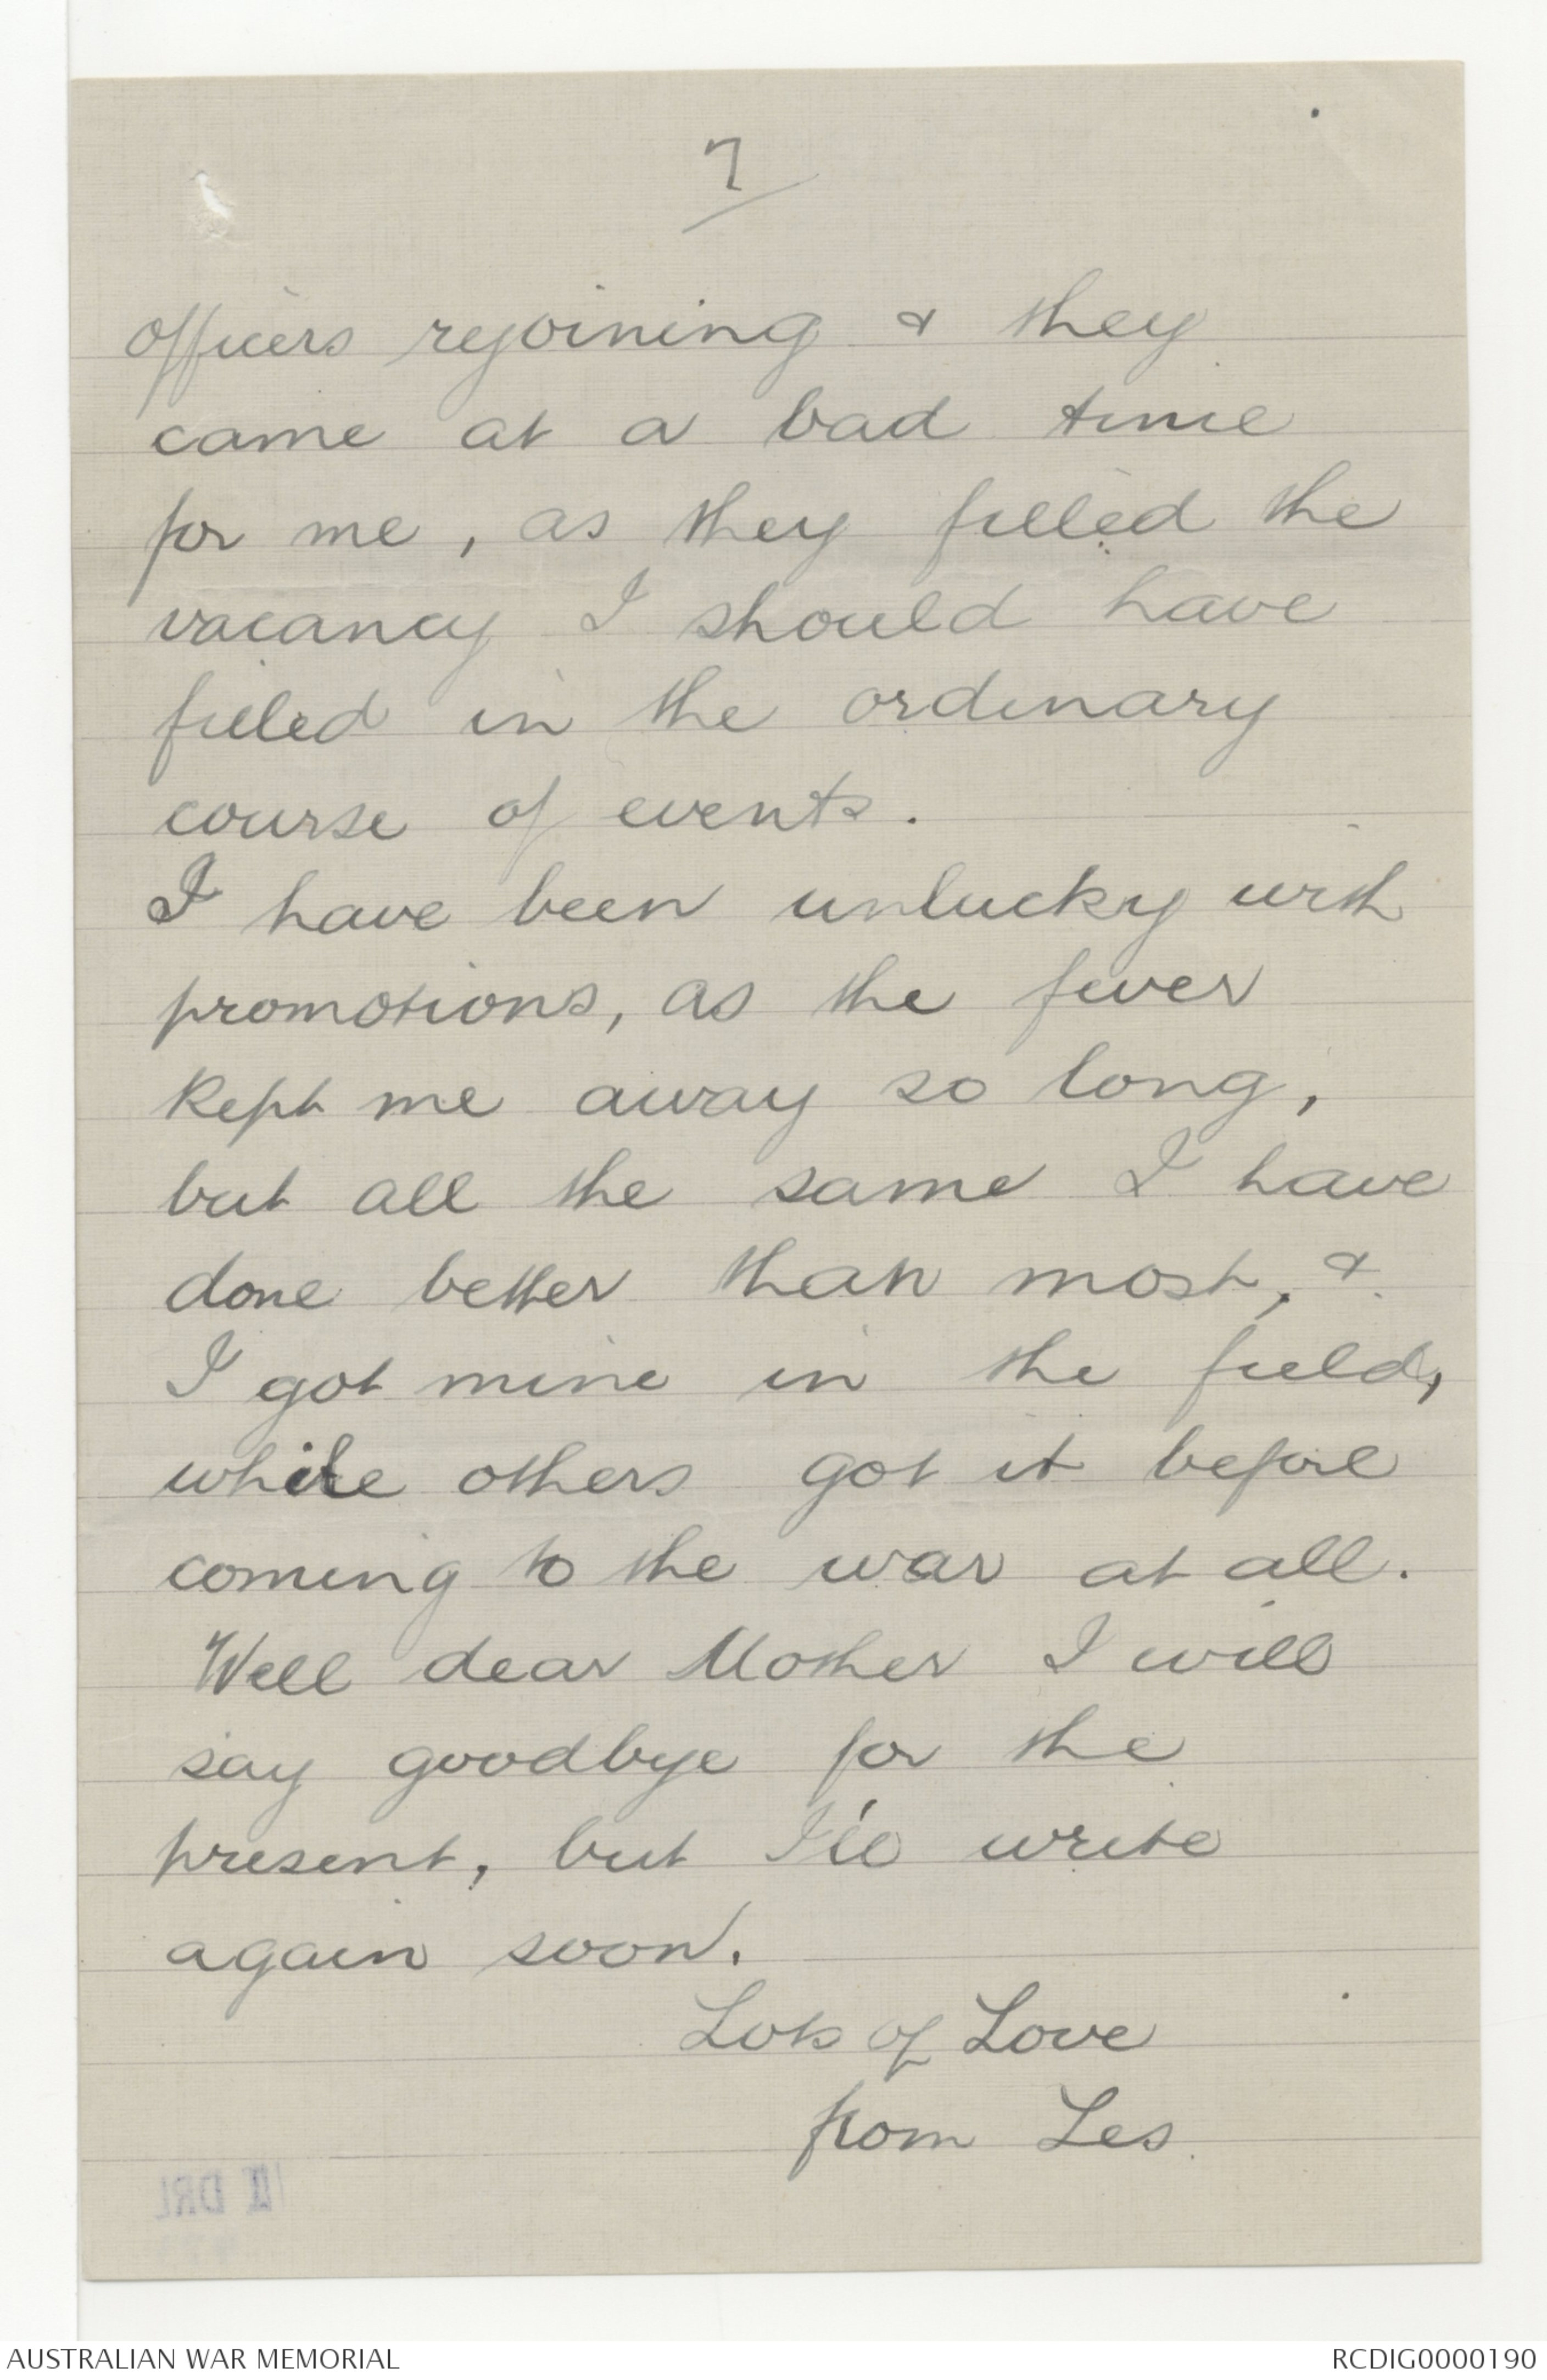 7
officers rejoining & they
came at a bad time
for me, as they filled the
vacancy I should have
filled in the ordinary
course of events.
I have been unlucky with
promotions, as the fever
kept me away so long,
but all the same I have
done better than most, &
I got mine in the field,
while others got it before
coming to the war at all.
Well dear Mother I will
say goodbye for the
present, but I'll write
again soon.
Lots of Love
from Les.
II DRL
AUSTRALIAN WAR MEMORIAL
RCDIG0000190